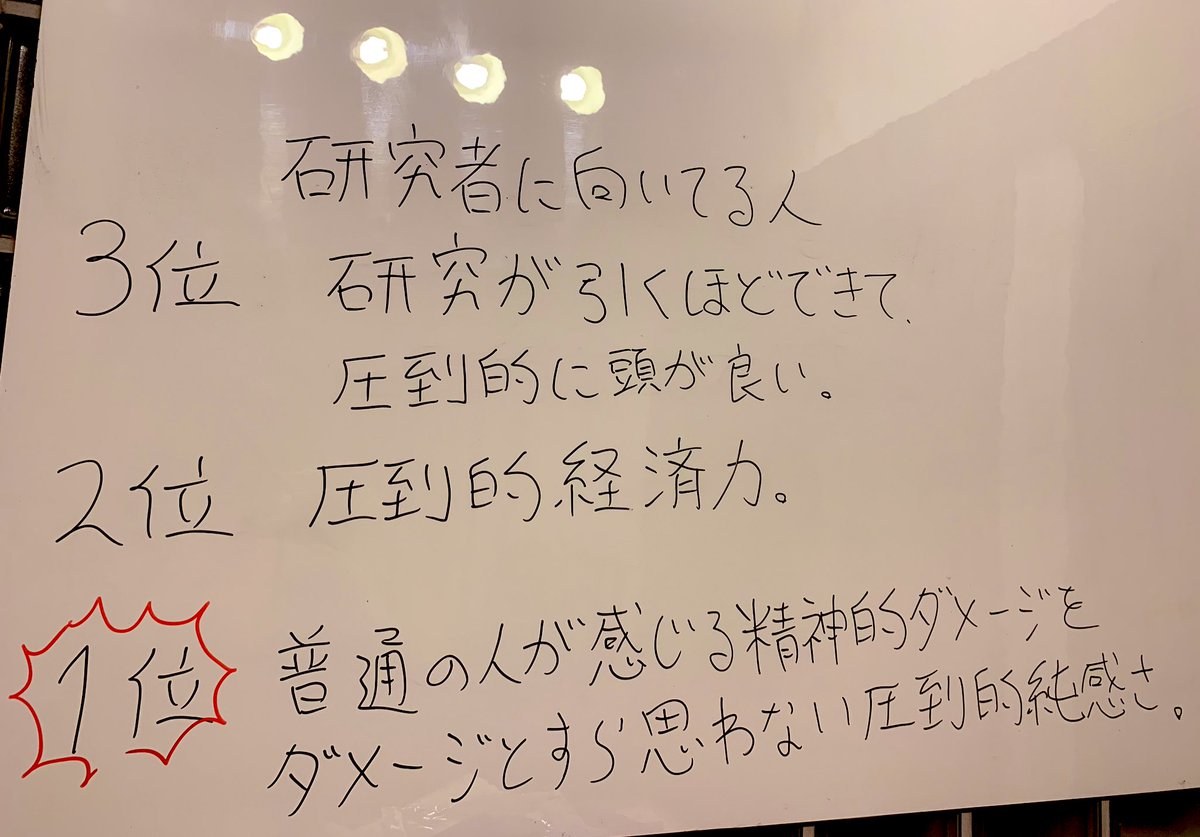 研究者に向いてる人
3位 研究が引くほどできて、
圧倒的に頭が良い。
2位 圧倒的経済力。
1位 普通の人が感じる精神的ダメージを
ダメージとすら思わない圧倒的純感さ。